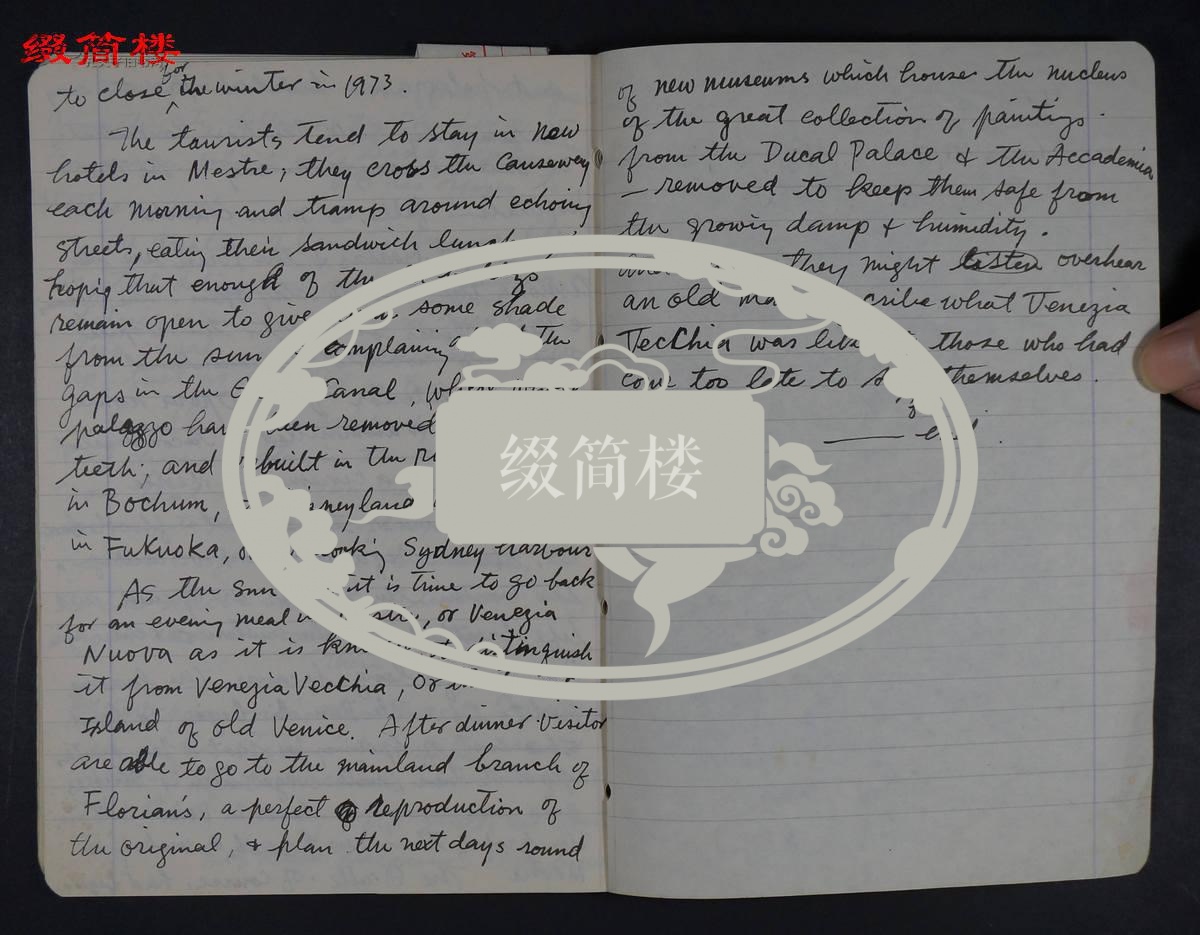 缀简楼
for
to close the winter in 1973.
The tourists tend to stay in new
hotels in Mestre; they cross the causeway
each morning and tramp around echoing
streets, eating their sandwich lunch
hoping that enough of the
remain open to give some shade
from the sun complaining the
gaps in the Canal, where
palazzo have been removed
teeth; and rebuilt in the
in Bochum, Disneyland
in Fukuoka, Sydney Harbour
As the sun it is time to go back
for an evening meal or Venezia
Nuova as it is distinguish
it from Venezia Vecchia, or
Island of old Venice. After dinner visitor
are able to go to the mainland branch of
Florian's, a perfect reproduction of
the original, & plan the next days round
of new museums which house the nucleus
of the great collection of paintings
from the Ducal Palace & the Accademia
— removed to keep them safe from
the growing damp & humidity.
they might overhear
an old what Venezia
Vecchia was those who had
come too late to themselves.
缀简楼